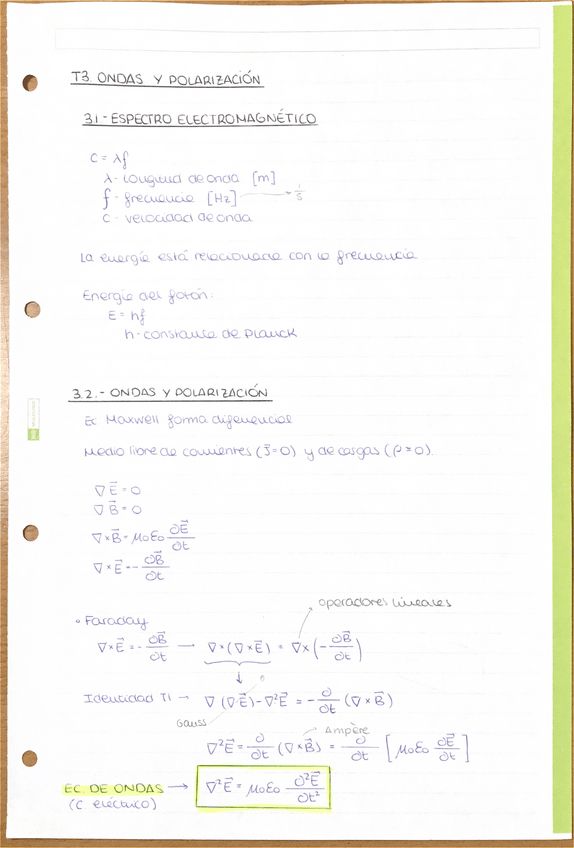 T3. ONDAS Y POLARIZACIÓN
3.1.- ESPECTRO ELECTROMAGNÉTICO
C = λf
λ- Longitud de onda [m]
f - frecuencia [Hz] → 1/s
C - velocidad de onda
La energía está relacionada con la frecuencia
Energía del fotón:
E = hf
h- constante de Planck
3.2.- ONDAS Y POLARIZACIÓN
Ec Maxwell forma diferencial
Medio libre de corrientes (J⃗=0) y de cargas (ρ=0).
∇E⃗ = 0
∇B⃗ = 0
∇×B⃗ = μ0ε0 ∂E⃗/∂t
∇×E⃗ = - ∂B⃗/∂t
operadores lineales
• Faraday
∇×E⃗ = - ∂B⃗/∂t → ∇×(∇×E⃗) = ∇×(- ∂B⃗/∂t)
↓ 0
Identidad T1 → ∇(∇·E⃗) - ∇²E⃗ = - ∂/∂t (∇×B⃗)
Gauss
Ampère
∇²E⃗ = ∂/∂t (∇×B⃗) = ∂/∂t [μ0ε0 ∂E⃗/∂t]
EC. DE ONDAS → ∇²E⃗ = μ0ε0 ∂²E⃗/∂t²
(C. eléctrico)